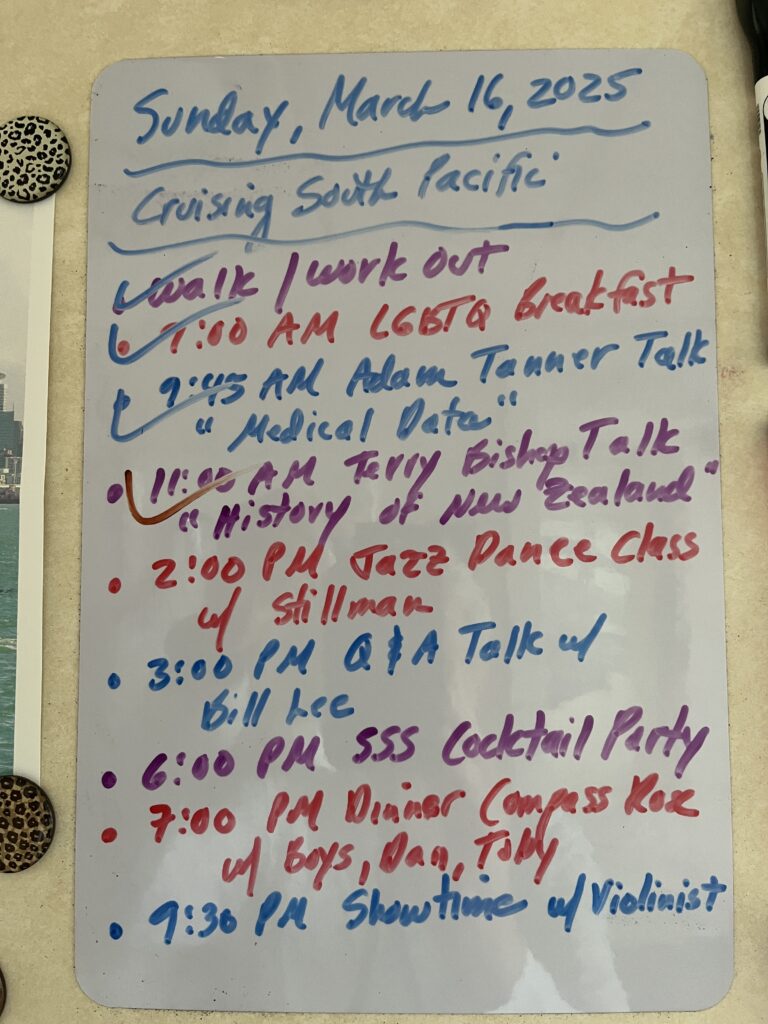 Sunday, March 16, 2025
Cruising South Pacific
walk / work out
• 9:00 AM LGBTQ Breakfast
• 9:45 AM Adam Tanner Talk
"Medical Data"
• 11:00 AM Terry Bishop Talk
"History of New Zealand"
• 2:00 PM Jazz Dance Class
w/ Stillman
• 3:00 PM Q & A Talk w/
Bill Lee
• 6:00 PM SSS Cocktail Party
• 7:00 PM Dinner Compass Rose
w/ Boys, Dan, Toby
• 9:30 PM Showtime w/ Violinist